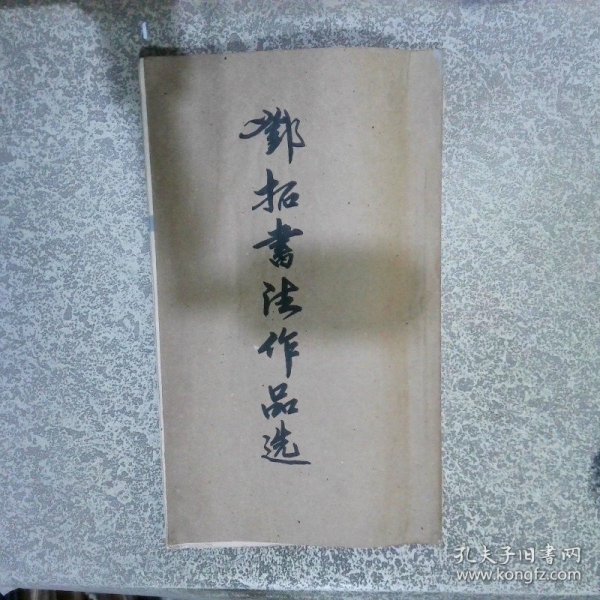 鄧拓書法作品选
孔夫子旧書网
www.kongfz.com